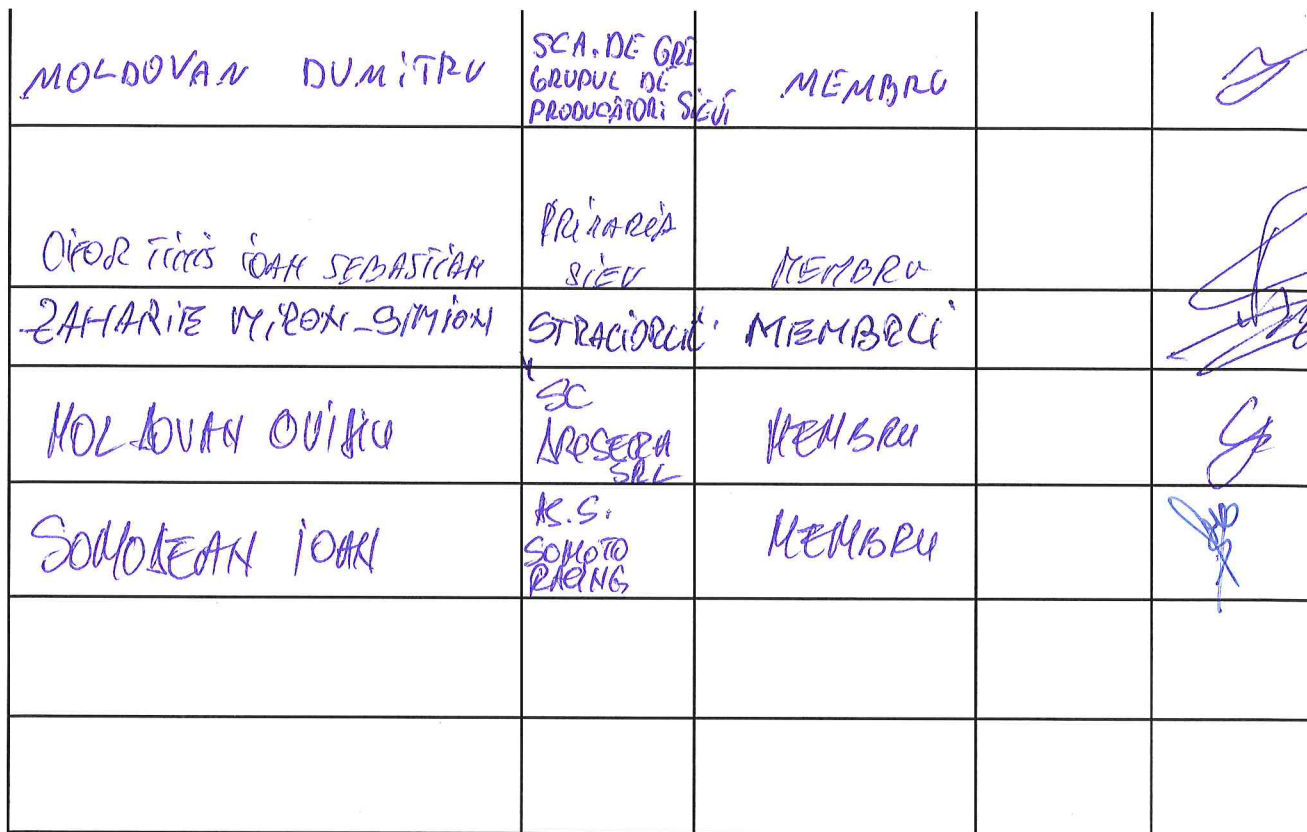 MOLDOVAN DUMITRU
SCA. DE GRI
GRUPUL DE
PRODUCĂTORI SIEUT
MEMBRU
TIMIS IOAN SEBASTIAN
PRIMARIA
SIEU
MEMBRU
ZAHARIE MIRON-SIMION
MEMBRU
MOLDOVAN OVIDIU
SC
SRL
MEMBRU
SOMODEAN IOAN
AS.S.
SOMOTO
RACING
MEMBRU